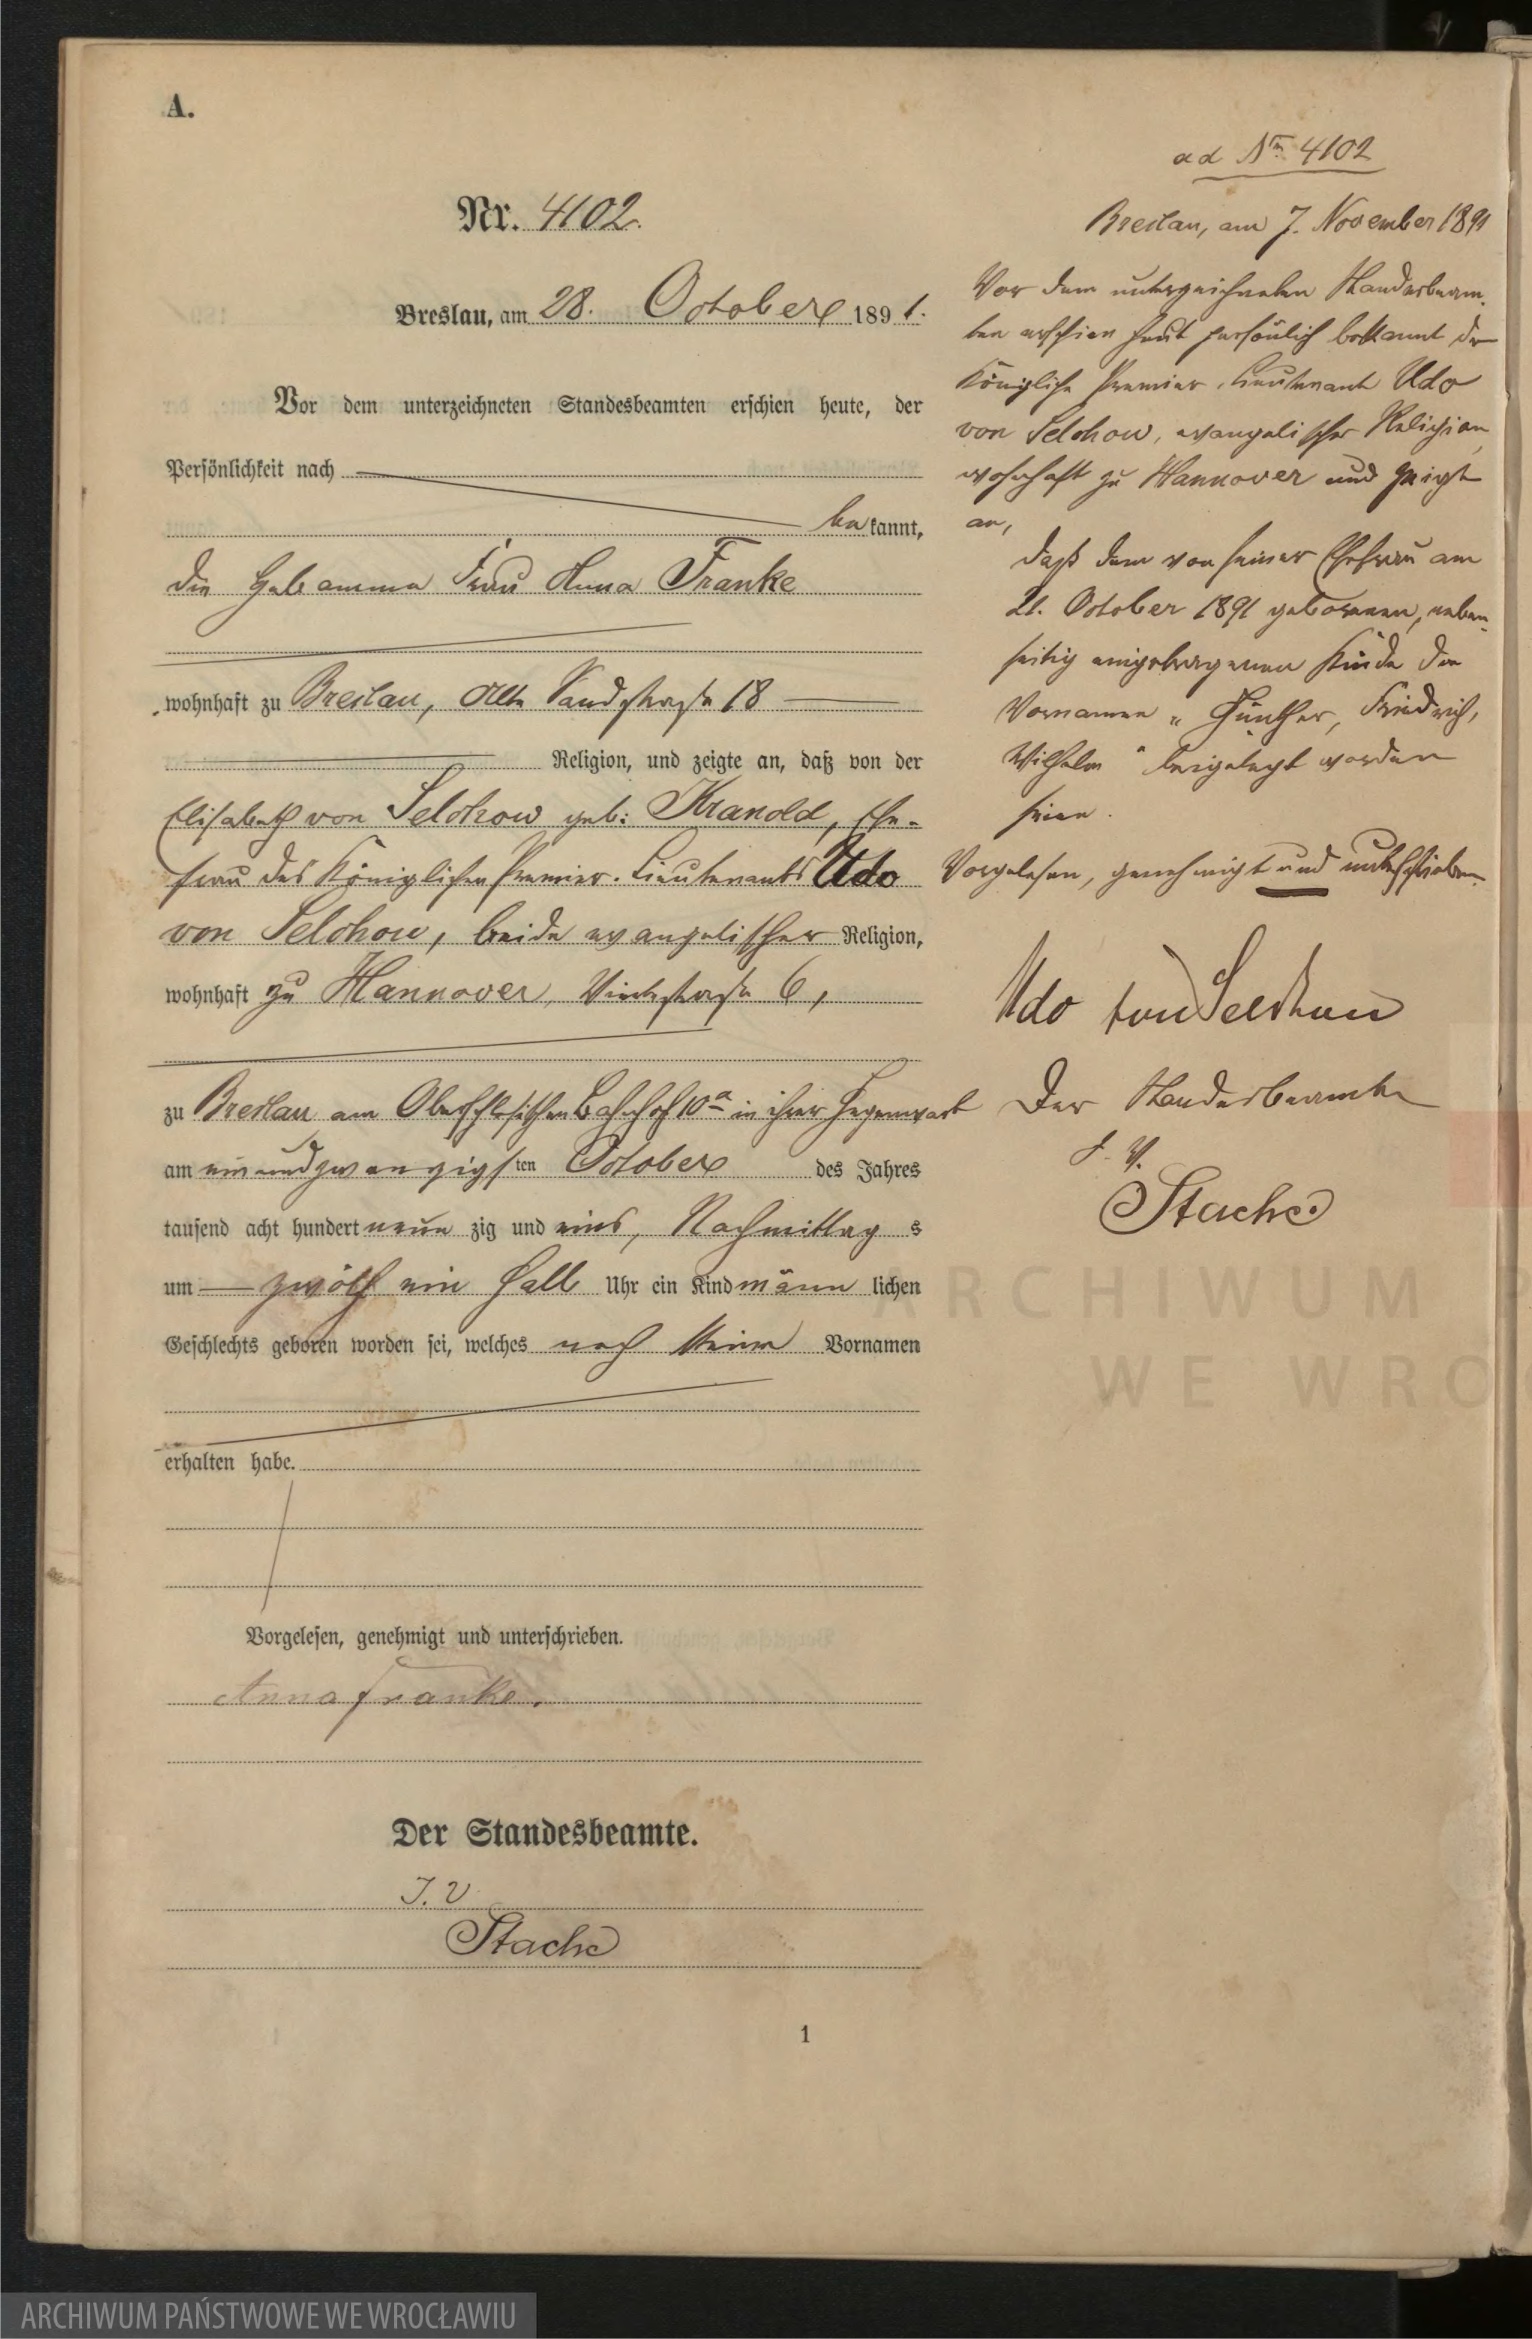 A.
Nr. 4102.
Breslau, am 28. October 1891.
Vor dem unterzeichneten Standesbeamten erschien heute, der
Persönlichkeit nach
bekannt,
die Hebamme Frau Anna Franke
wohnhaft zu Breslau, Alte Sandstraße 18
Religion, und zeigte an, daß von der
Elisabeth von Selchow geb: Kranold, Ehe-
frau des Königlichen Premier-Lieutenants Udo
von Selchow, beide evangelischer Religion,
wohnhaft zu Hannover, 6,
zu Breslau am Oberschlesischen Bahnhof 10a in ihrer Gegenwart
am einundzwanzigsten October des Jahres
tausend acht hundert neunzig und eins, Nachmittags
um zwölf ein halb Uhr ein Kind männlichen
Geschlechts geboren worden sei, welches noch keine Vornamen
erhalten habe.
Vorgelesen, genehmigt und unterschrieben.
Anna Franke.
Der Standesbeamte.
J.V
Stache
1
ad Nr. 4102
Breslau, am 7. November 1891
Vor dem unterzeichneten Standesbeam-
ten erschien heut persönlich bekannt der
Königliche Premier-Lieutenant Udo
von Selchow, evangelischer Religion,
wohnhaft zu Hannover und zeigte
an,
daß dem von seiner Ehefrau am
21. October 1891 geborenen, neben-
seitig eingetragenen Kinde die
Vornamen „Günther, Friedrich,
Wilhelm" beigelegt worden
seien.
Vorgelesen, genehmigt und unterschrieben.
Udo von Selchow
Der Standesbeamte
J. V.
Stache
ARCHIWUM P
WE WRO
ARCHIWUM PAŃSTWOWE WE WROCŁAWIU